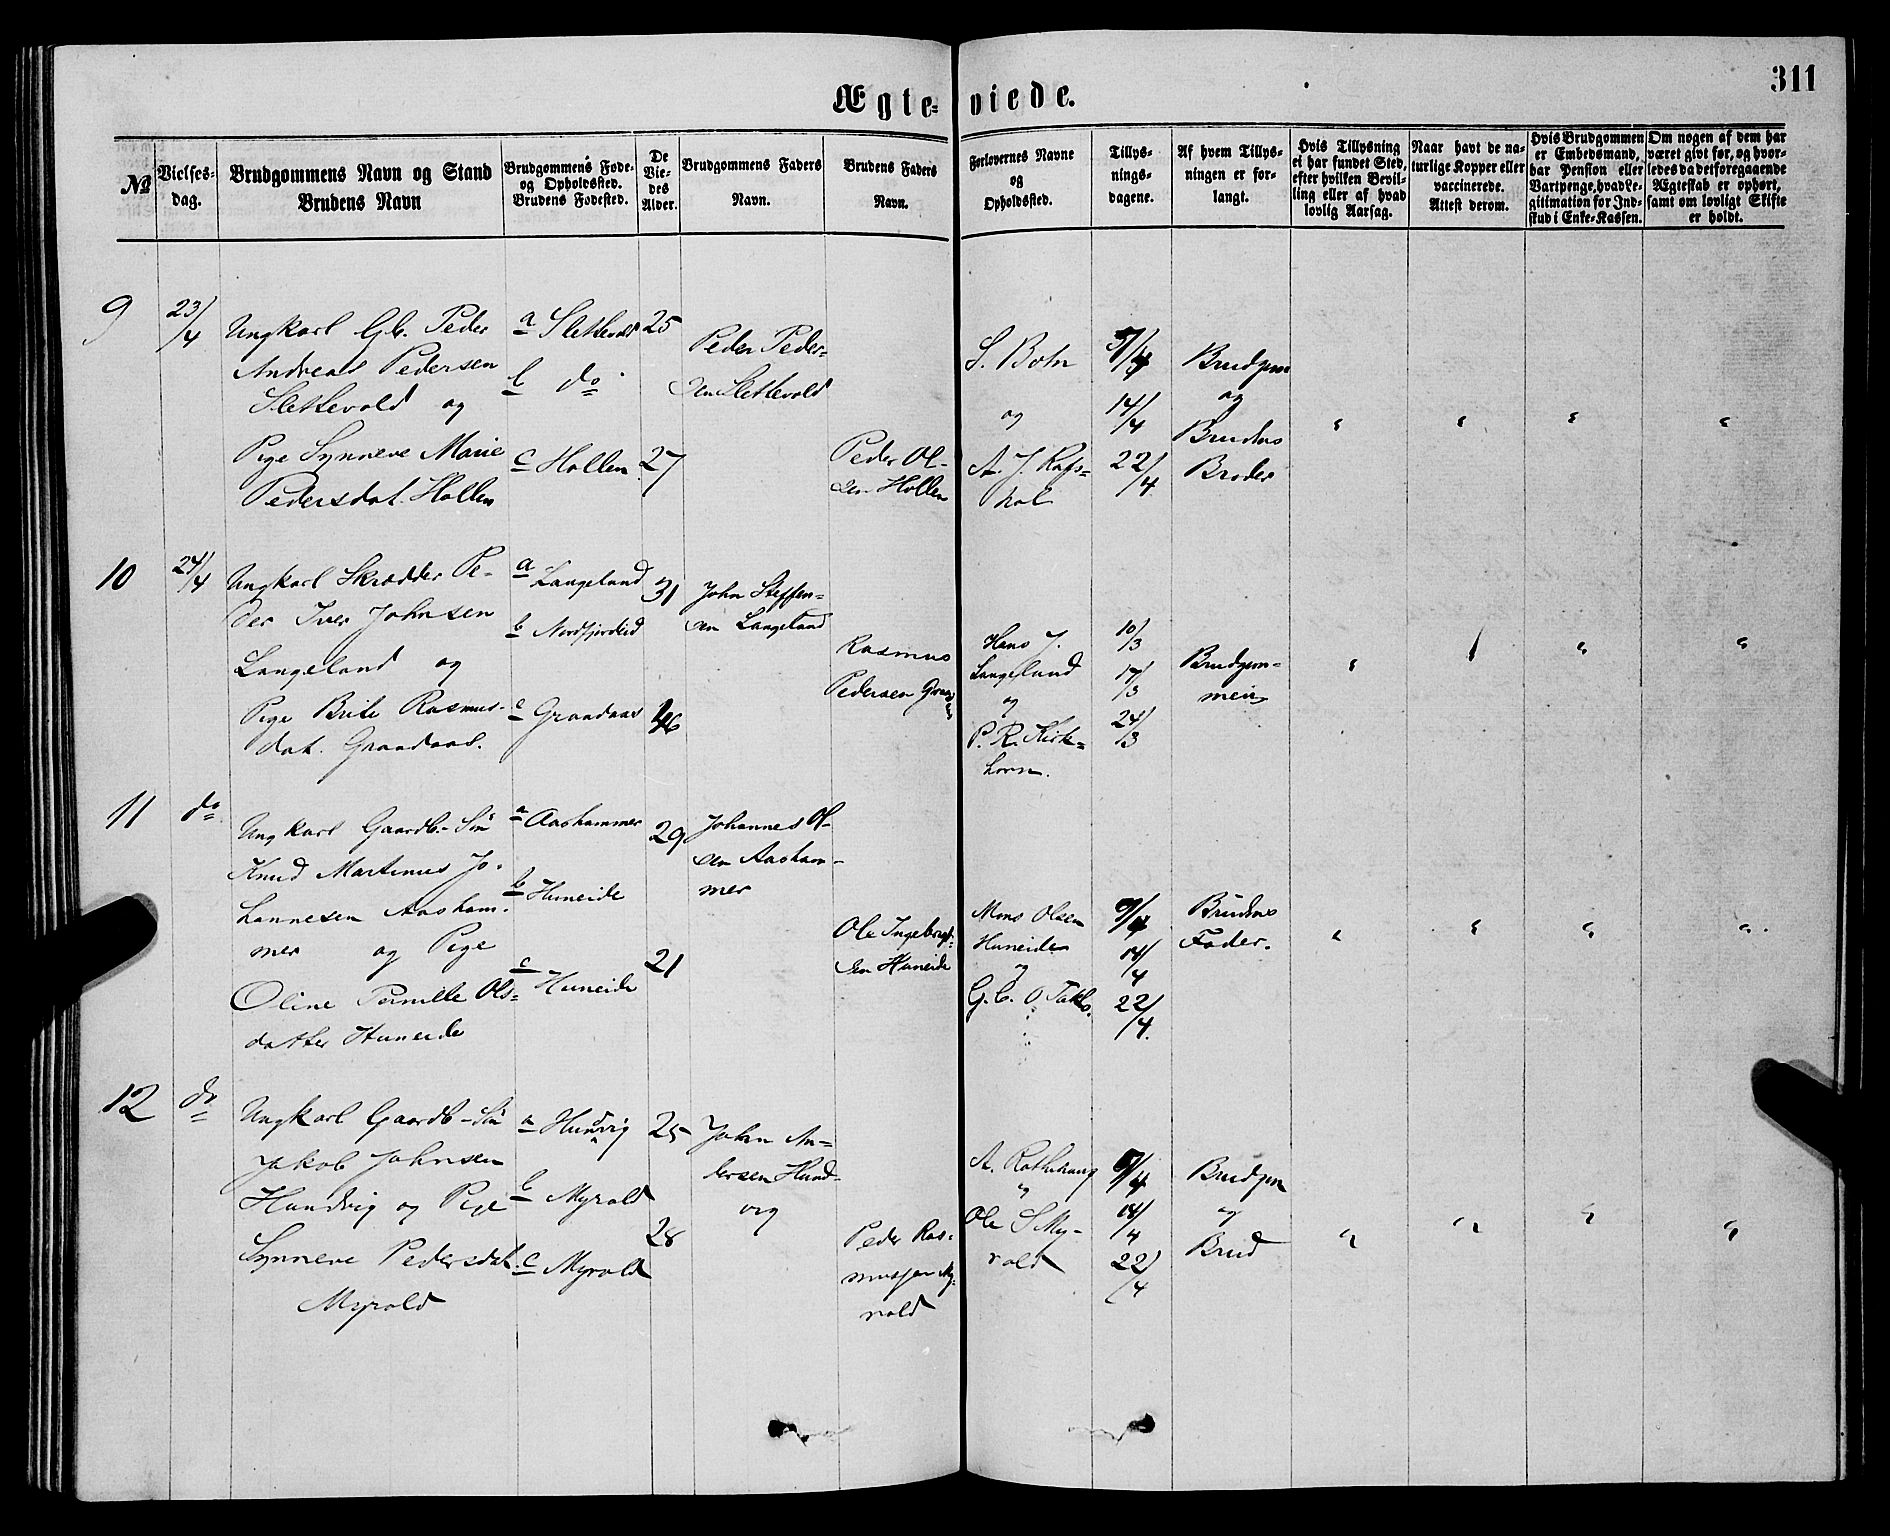 311
Ægte-viede.
No
Vielses-
dag.
Brudgommens Navn og Stand
Brudens Navn
Brudgommens Føde-
og Opholdssted.
Brudens Fødested.
De
Vie-
des
Alder.
Brudgommens Faders
Navn.
Brudens Faders
Navn.
Forlovernes Navne
og
Opholdssted.
Tillys-
nings-
dagene.
Af hvem Tillys-
ningen er for-
langt.
Hvis Tillysning
ei har fundet Sted,
efter hvilken Bevil-
ling eller af hvad
lovlig Aarsag.
Naar havt de na-
turlige Kopper eller
vaccinerede.
Attest derom.
Hvis Brudgommen
er Embedsmand,
har Pension eller
Vartpenge, hvad Le-
gitimation for Ind-
skud i Enke-Kassen.
Om nogen af dem har
været givt før, og hvor-
ledes da det foregaaende
Ægteskab er ophørt,
samt om lovligt Skifte
er holdt.
9
23/4
Ungkarl Gb. Peder
Andreas Pedersen
Slettevold og
Pige Synneve Marie
Pedersdat. Hollen
a Slettevold
b do
c Hollen
25
27
Peder Peder-
sen Slettevold
Peder Ol-
sen Hollen
S. Bohn
og
A. J. Rafs-
hol
7/4
14/4
22/4
Brudgom
og
Brudens
Broder
10
24/4
Ungkarl Skrædder Pe-
der Iver Johnsen
Langeland og
Pige Brite Rasmus-
dat. Graadaas.
a Langeland
b Nordfjordeid
c Graadaas
31
46
John Steffen-
sen Langeland
Rasmus
Pedersen Graa
Hans J.
Langeland
og
P. R. Kirk-
horn.
10/3
17/3
24/3
Brudgom-
men
11
do
Ungkarl Gaardb.-Søn
Knud Martinus Jo-
hannesen Aasham-
mer og Pige
Oline Pernille Ols-
datter Huneide
a Aashammer
b Huneide
c Huneide
29
21
Johannes Ol-
sen Aasham-
mer
Ole Ingebrigt-
sen Huneide
Mons Olsen
Huneide
og
G. C. O. Taklo.
7/4
14/4
22/4.
Brudens
Fader.
12
do
Ungkarl Gaardb-Søn
Jakob Johnsen
Hundvig og Pige
Synneve Pedersdat.
Myrold
a Hundvig
b Myrold
c Myrold
25
28
John An-
dersen Hund-
vig
Peder Ras-
mussen My-
rold
A. Rotihaug
og
Ole S My-
rold
7/4
14/4
22/4
Brudgom
og
Brud